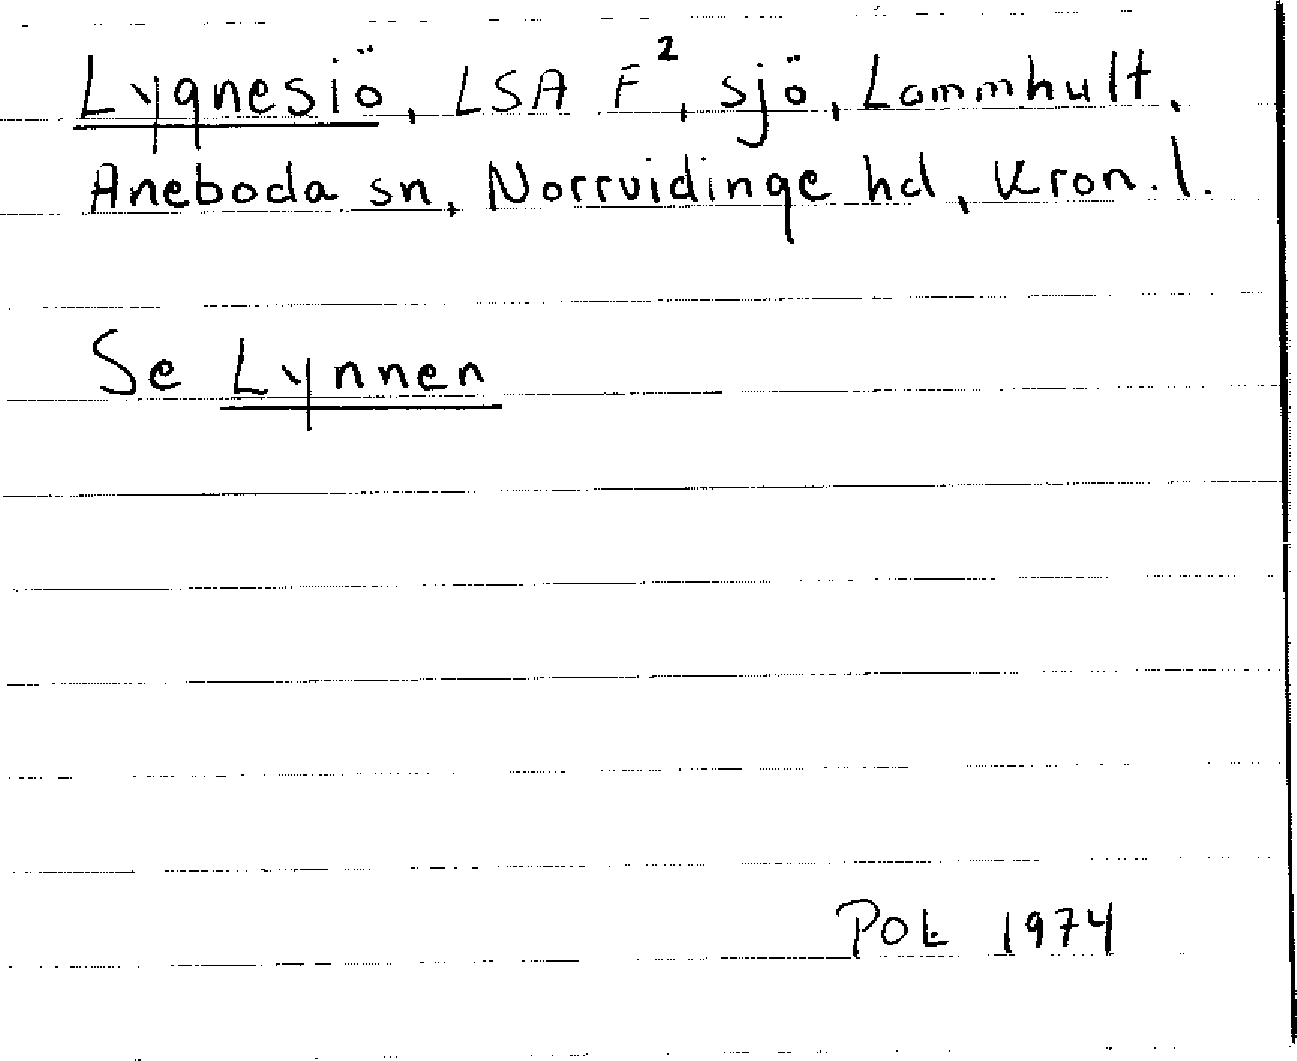 Lygnesiö, LSA F², sjö, Lammhult,
Aneboda sn, Norrvidinge hd, Kron. l.
Se Lynnen
POŁ 1974